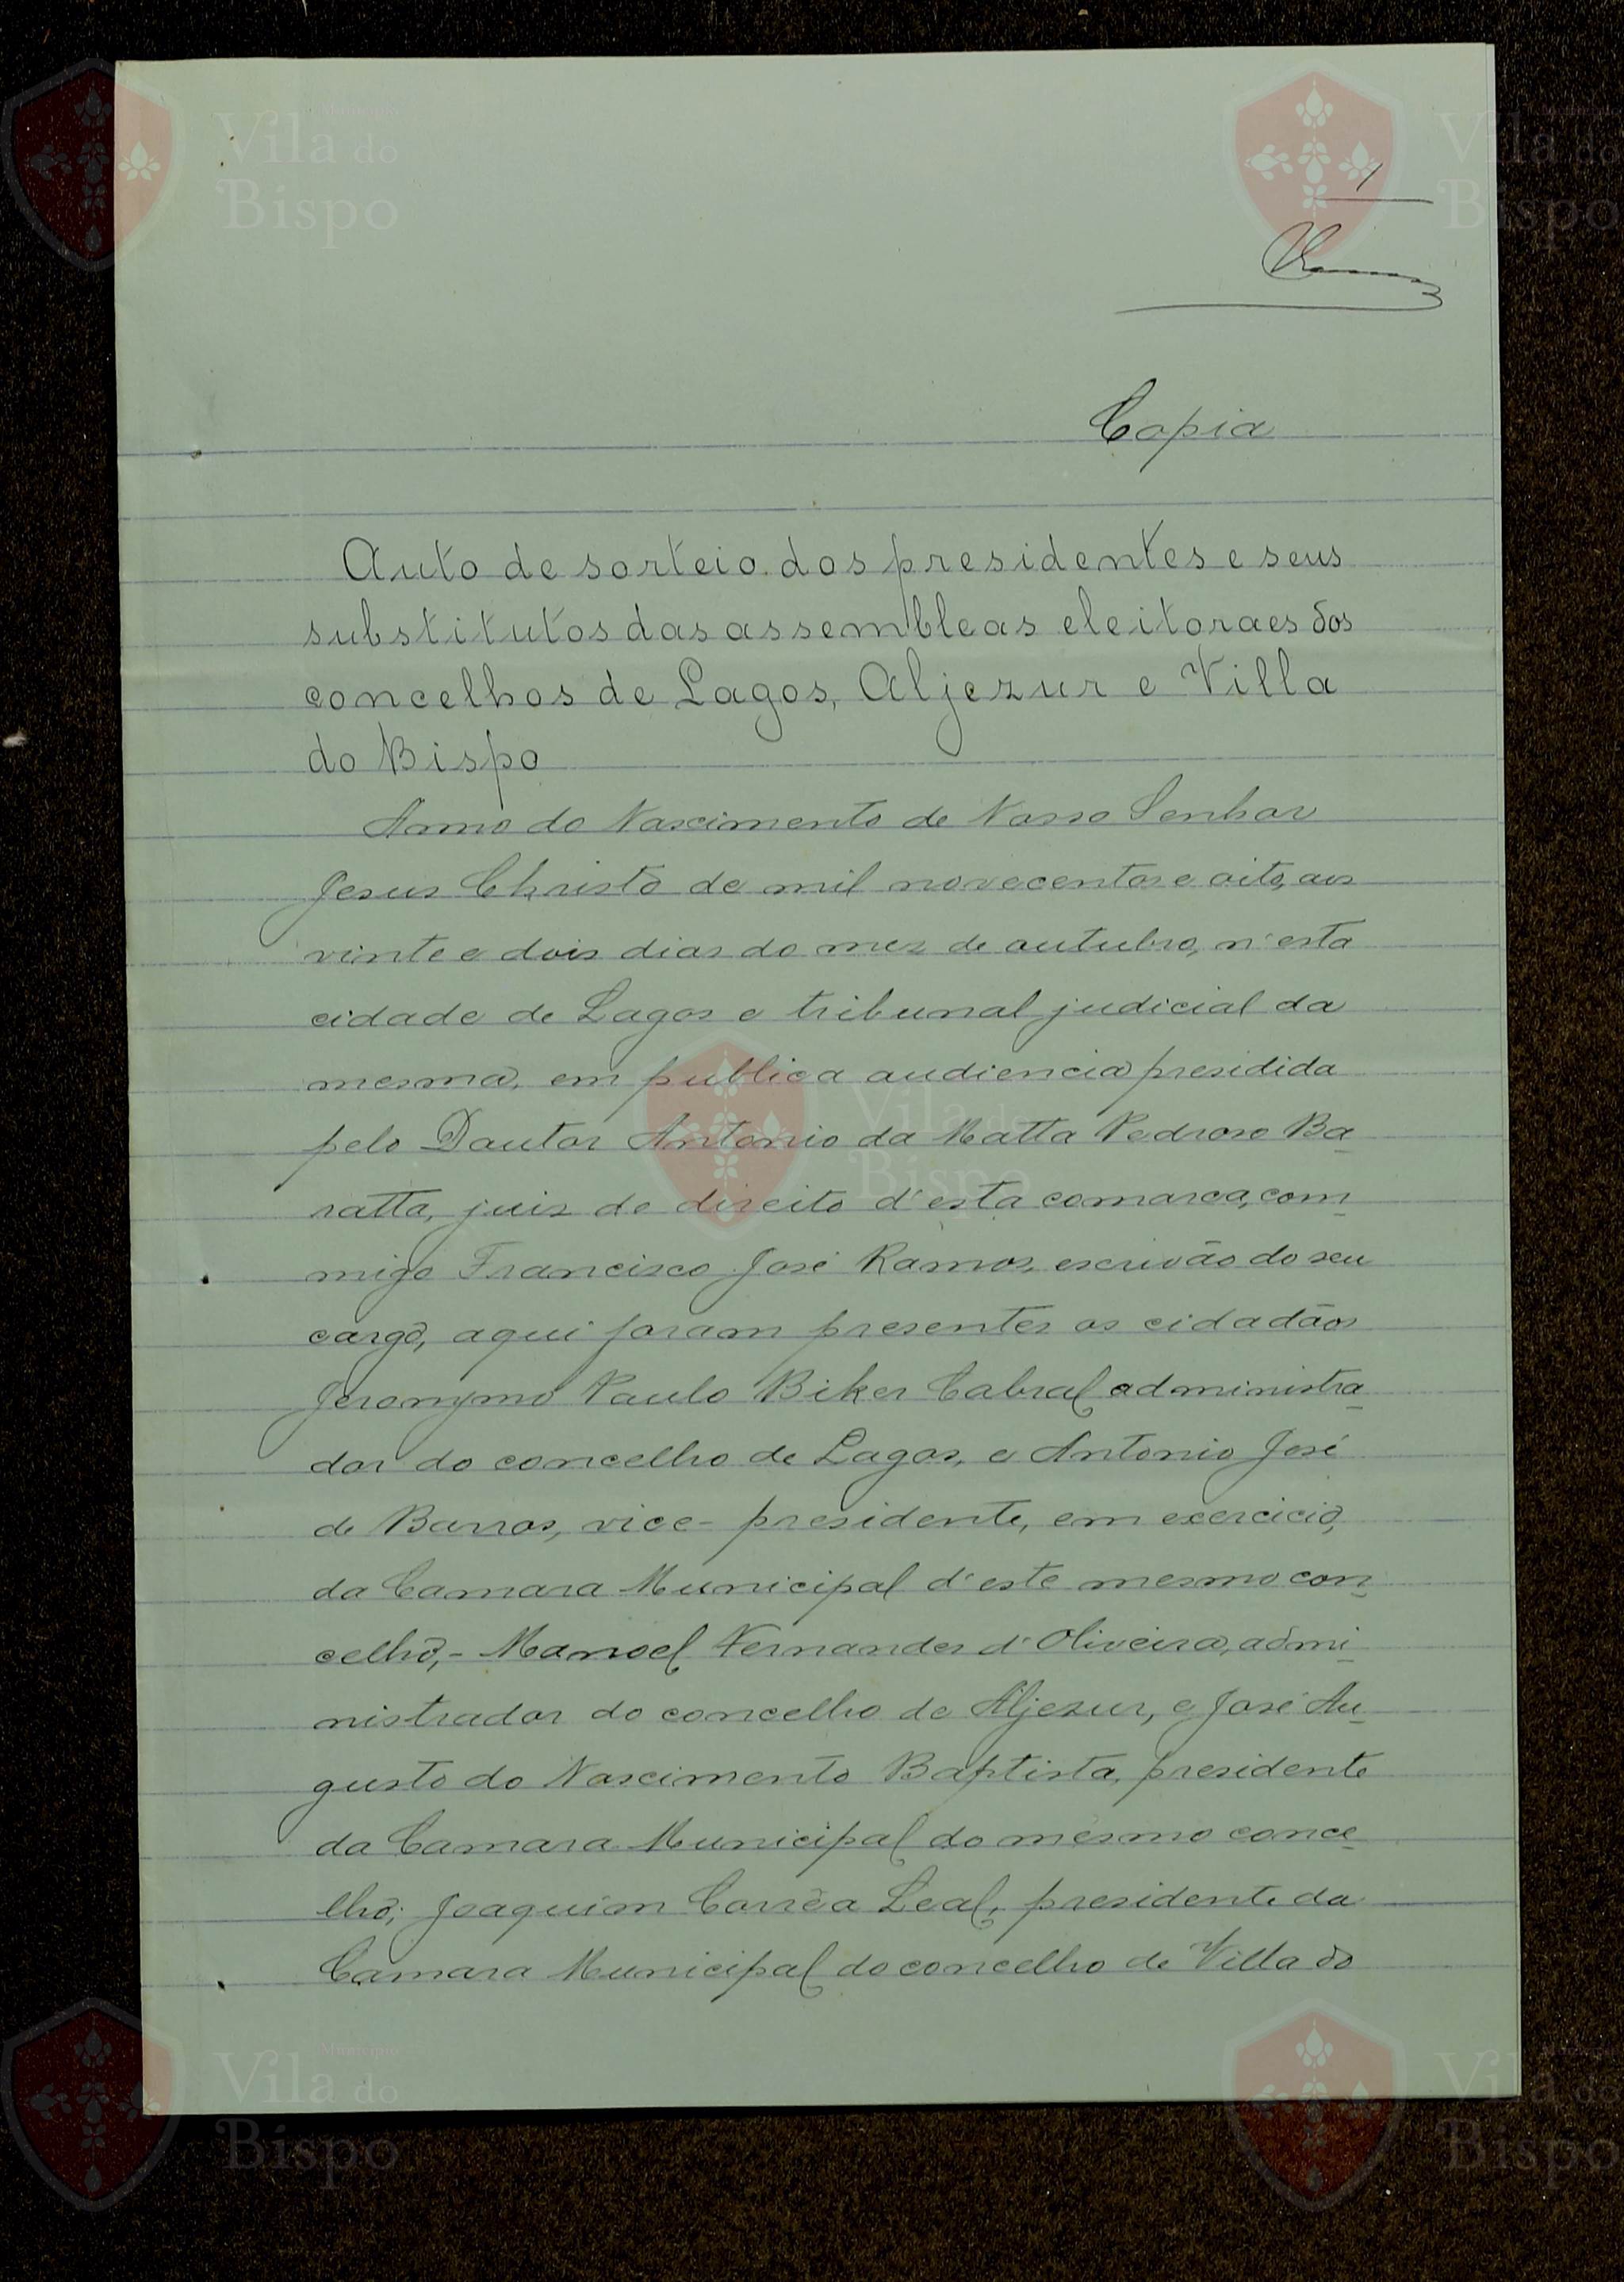 1
Ramos
Copia
Auto de sorteio dos presidentes e seus
substitutos das assembleas eleitoraes dos
concelhos de Lagos, Aljezur e Villa
do Bispo
Anno do Nascimento de Nosso Senhor
Jesus Christo de mil novecentos e oito, aos
vinte e dois dias do mez de outubro, n'esta
cidade de Lagos e tribunal judicial da
mesma, em publica audiencia presidida
pelo Doutor Antonio da Matta Pedroso Ba-
ratta, juiz de direito d'esta comarca, com-
migo Francisco José Ramos, escrivão do seu
cargo, aqui foram presentes os cidadãos
Jeronymo Paulo Biker Cabral administra-
dor do concelho de Lagos, e Antonio José
de Barros, vice-presidente, em exercicio,
da Camara Municipal d'este mesmo con-
celho,- Manoel Fernandes d'Oliveira, admi-
nistrador do concelho de Aljezur, e José Au-
gusto do Nascimento Baptista, presidente
da Camara Municipal do mesmo conce-
lho; Joaquim Corrêa Leal, presidente da
Camara Municipal do concelho de Villa do
Município
Vila do
Bispo